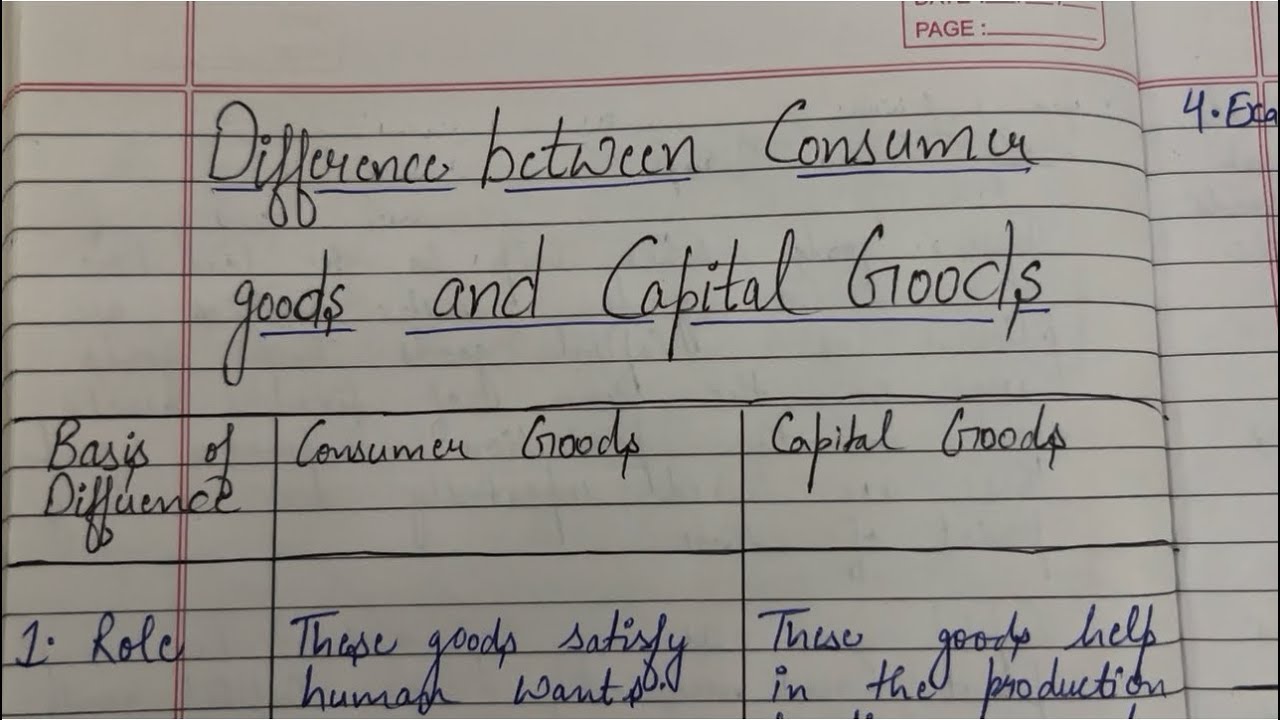 PAGE :
4. Exa
Difference between Consumer
goods and Capital Goods
Basis of Difference
Consumer Goods
Capital Goods
1. Role
These goods satisfy
human wants.
These goods help
in the production